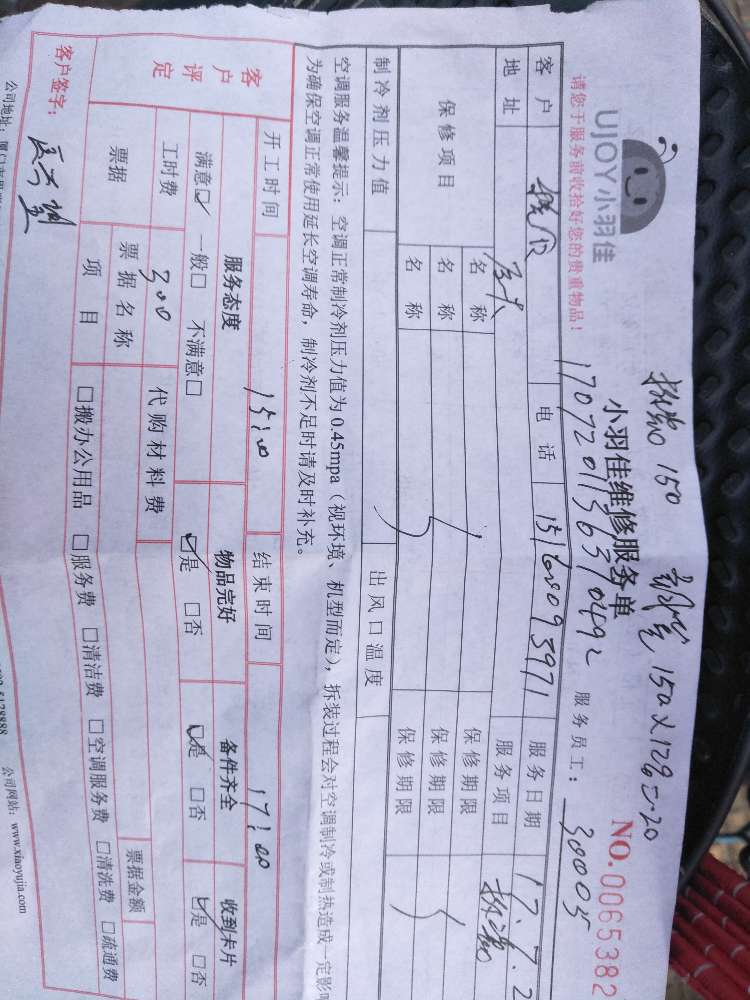 拆装 150 150×128=20
UJOY小羽佳
小羽佳维修服务单
NO.0065382
请您于服务前收拾好您的贵重物品!
服务员工: 30005
客户 电话 服务日期 17.7.2
地址 服务项目 拆装
保修项目 名称 保修期限
名称 保修期限
名称 保修期限
制冷剂压力值 出风口温度
空调服务温馨提示:空调正常制冷剂压力值为0.45mpa(视环境、机型而定),拆装过程会对空调制冷或制热造成一定影
为确保空调正常使用延长空调寿命,制冷剂不足时请及时补充。
开工时间 15:10 结束时间 17:00
客户评定 服务态度 物品完好 备件齐全 收到卡片
满意☑ 一般□ 不满意□ ☑是 □否 ☑是 □否 ☑是 □否
工时费 300 代购材料费
票据 票据名称 票据金额
项目 □搬办公用品 □服务费 □清洁费 □空调服务费 □清洗费 □疏通费
客户签字:
公司地址: 5128888 公司网站:www.xiaoyujia.com